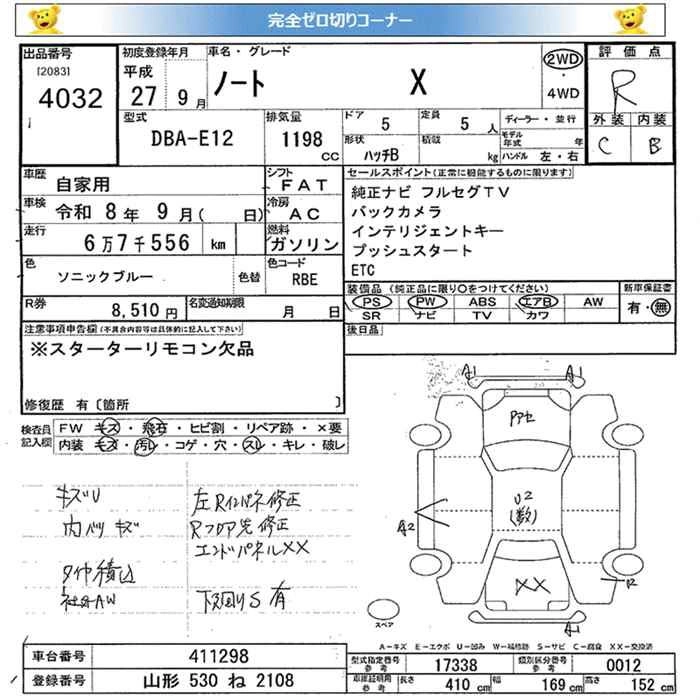 完全ゼロ切りコーナー
出品番号
[2083]
4032
初度登録年月
平成
27 9月
車名・グレード
ノート X
2WD
・
4WD
評価点
R
外装 内装
C B
型式
DBA-E12
排気量
1198
cc
ドア 5
定員 5 人
形状 ハッチB
積載 kg
ディーラー・並行
モデル年式 年
ハンドル 左・右
車歴 自家用
シフト FAT
車検 令和 8年 9月( 日)
冷房 AC
走行 6万7千556 km
燃料 ガソリン
色 ソニックブルー 色替
色コード RBE
R券 8,510円
名変通知期限 月 日
セールスポイント(正常に機能するものに限ります)
純正ナビ フルセグTV
バックカメラ
インテリジェントキー
プッシュスタート
ETC
装備品(純正品に限り○をつけてください)
新車保証書
PS PW ABS エアB AW
SR ナビ TV カワ
有・無
後日品
注意事項申告欄(不具合内容等は具体的に記入して下さい)
※スターターリモコン欠品
修復歴 有〔箇所 〕
検査員記入欄
FW キズ・飛石・ヒビ割・リペア跡・×要
内装 キズ・汚レ・コゲ・穴・スレ・キレ・破レ
キズU
内バリキズ
タイヤ積込
社外AW
左Rインパネ修正
Rフロア先修正
エンドパネルXX
下回りS有
A1 A1
アアセ
U2
(数)
A2
XX
R
A1
スペア
A-キズ E-エクボ U-凹み W-補修跡 S-サビ C-腐食 XX-交換済
車台番号 411298
登録番号 山形 530 ね 2108
型式指定番号 参考 17338
類別区分番号 参考 0012
車庫証明用 参考 長さ 410 cm 幅 169 cm 高さ 152 cm